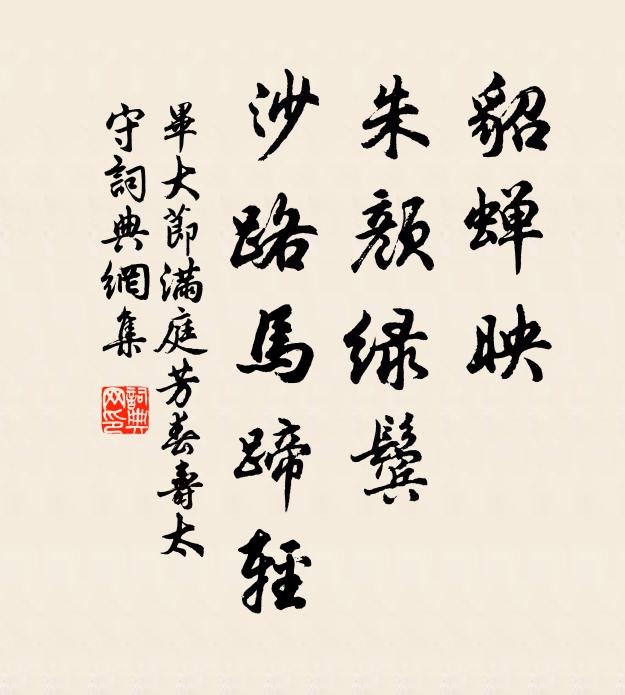 貂蟬映
朱顏綠鬢
沙路馬蹄輕
畢大節滿庭芳春壽太
守詞典網集
詞典
网印